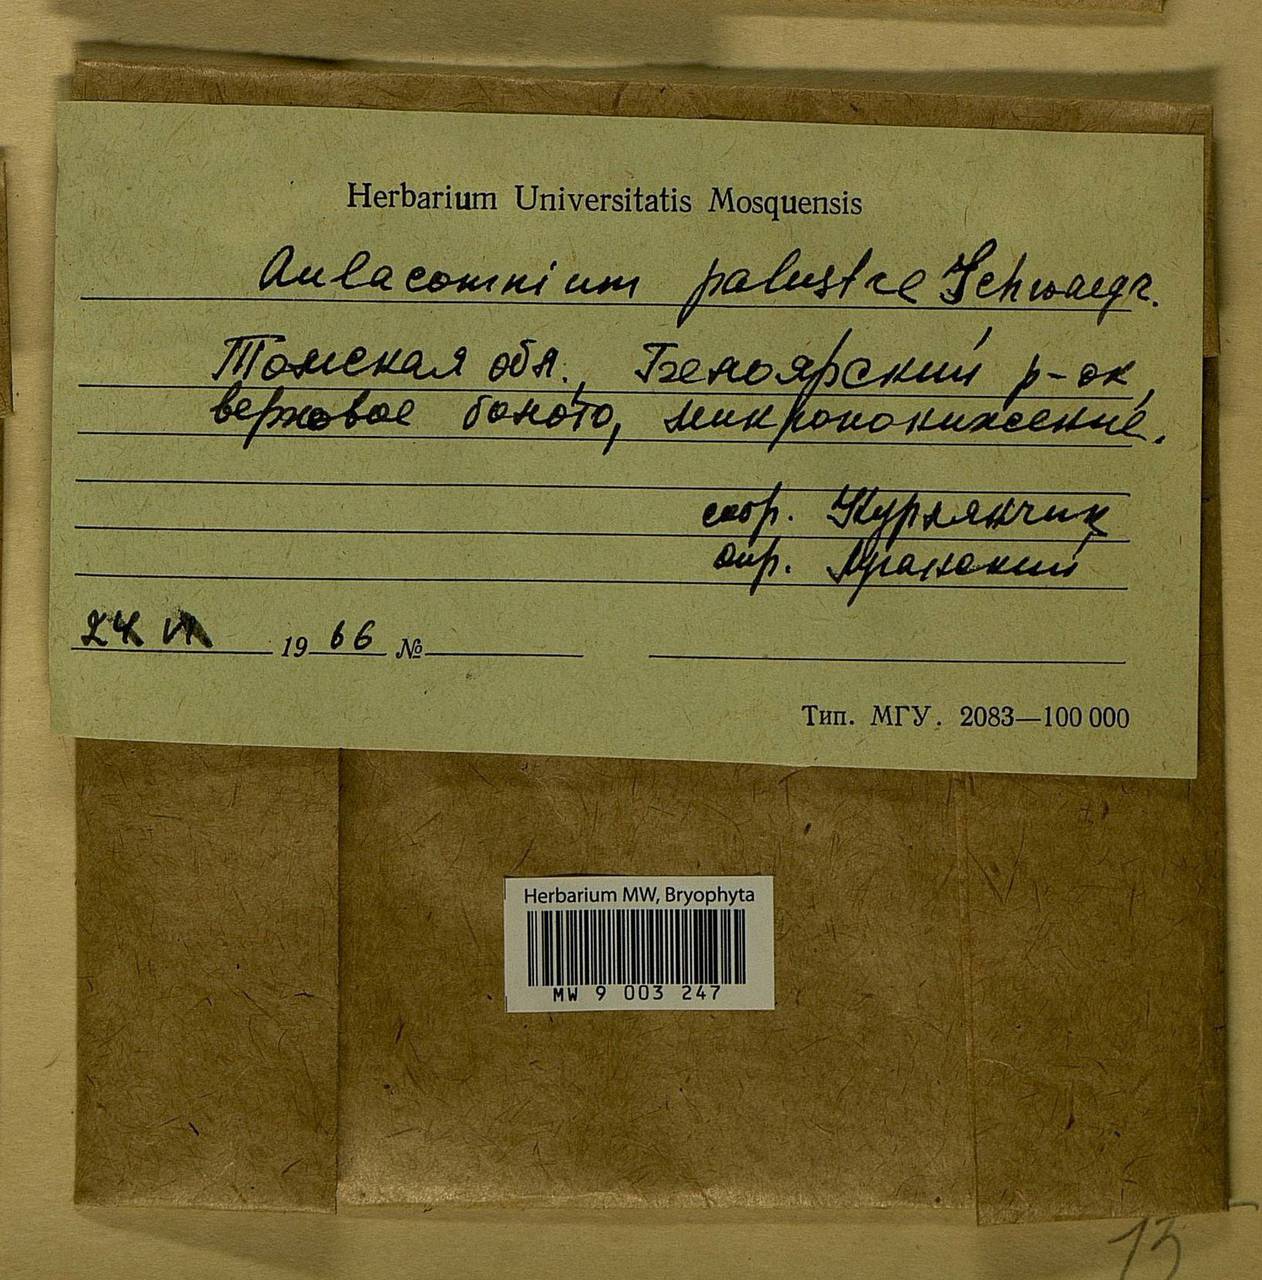 Herbarium Universitatis Mosquensis
Aulacomnium palustre Schwaegr.
Томская обл., Белоярский р-он,
верховое болото, микропонижение.
собр. Курлянчик
опр.
24 VI 1966 №
Тип. МГУ. 2083—100 000
Herbarium MW, Bryophyta
MW 9 003 247